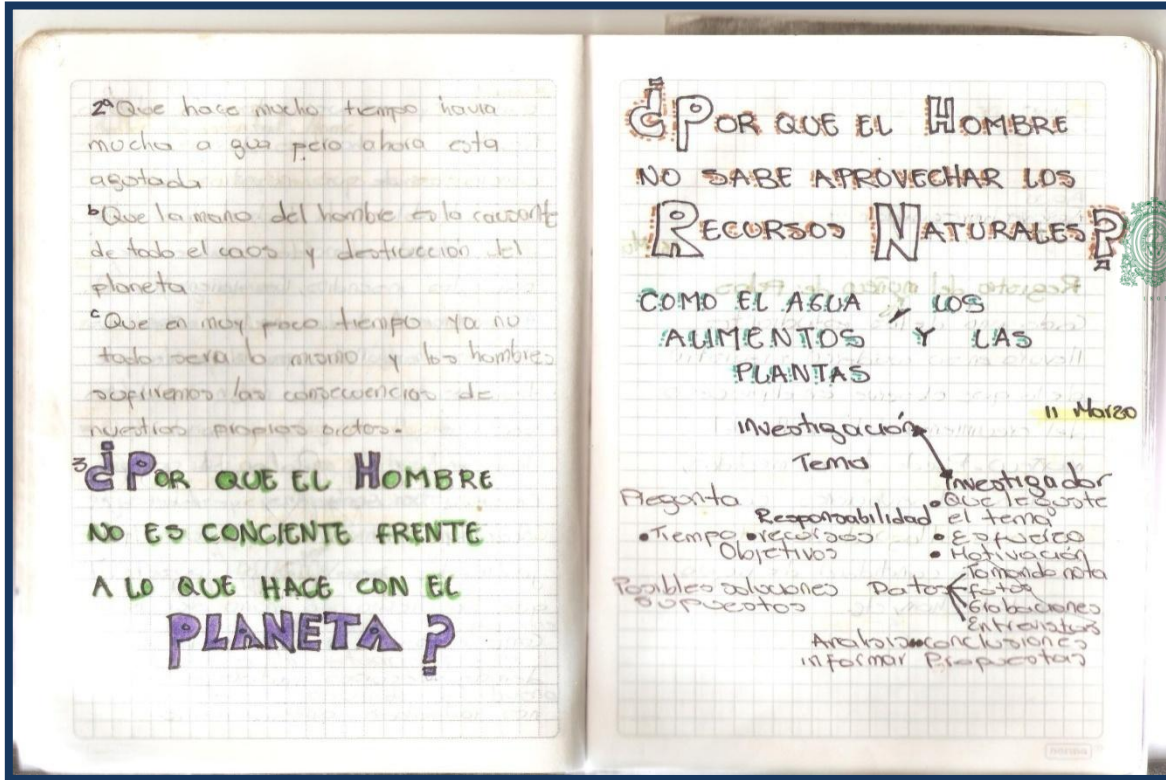 2ª Que hace mucho tiempo havia
mucha a gua pero ahora esta
agotada
b Que la mano del hombre es la causante
de todo el caos y destruccion del
planeta
c Que en muy poco tiempo ya no
todo sera lo mismo y los hombres
sufriremos las consecuencias de
nuestros propios actos.
3 ¿POR QUE EL HOMBRE
NO ES CONCIENTE FRENTE
A LO QUE HACE CON EL
PLANETA?
¿POR QUE EL HOMBRE
NO SABE APROVECHAR LOS
RECURSOS NATURALES?
COMO EL AGUA, LOS
ALIMENTOS Y LAS
PLANTAS
11 Marzo
Investigación
Tema
Investigador
Pregunta
• Que le guste
el tema
Responsabilidad
• Tiempo • recursos
• Esfuerzo
Objetivos
• Motivación
Posibles soluciones
supuestos
Datos
Tomando nota
fotos
Grabaciones
Entrevistas
Analisis conclusiones
informar Propuestas
norma